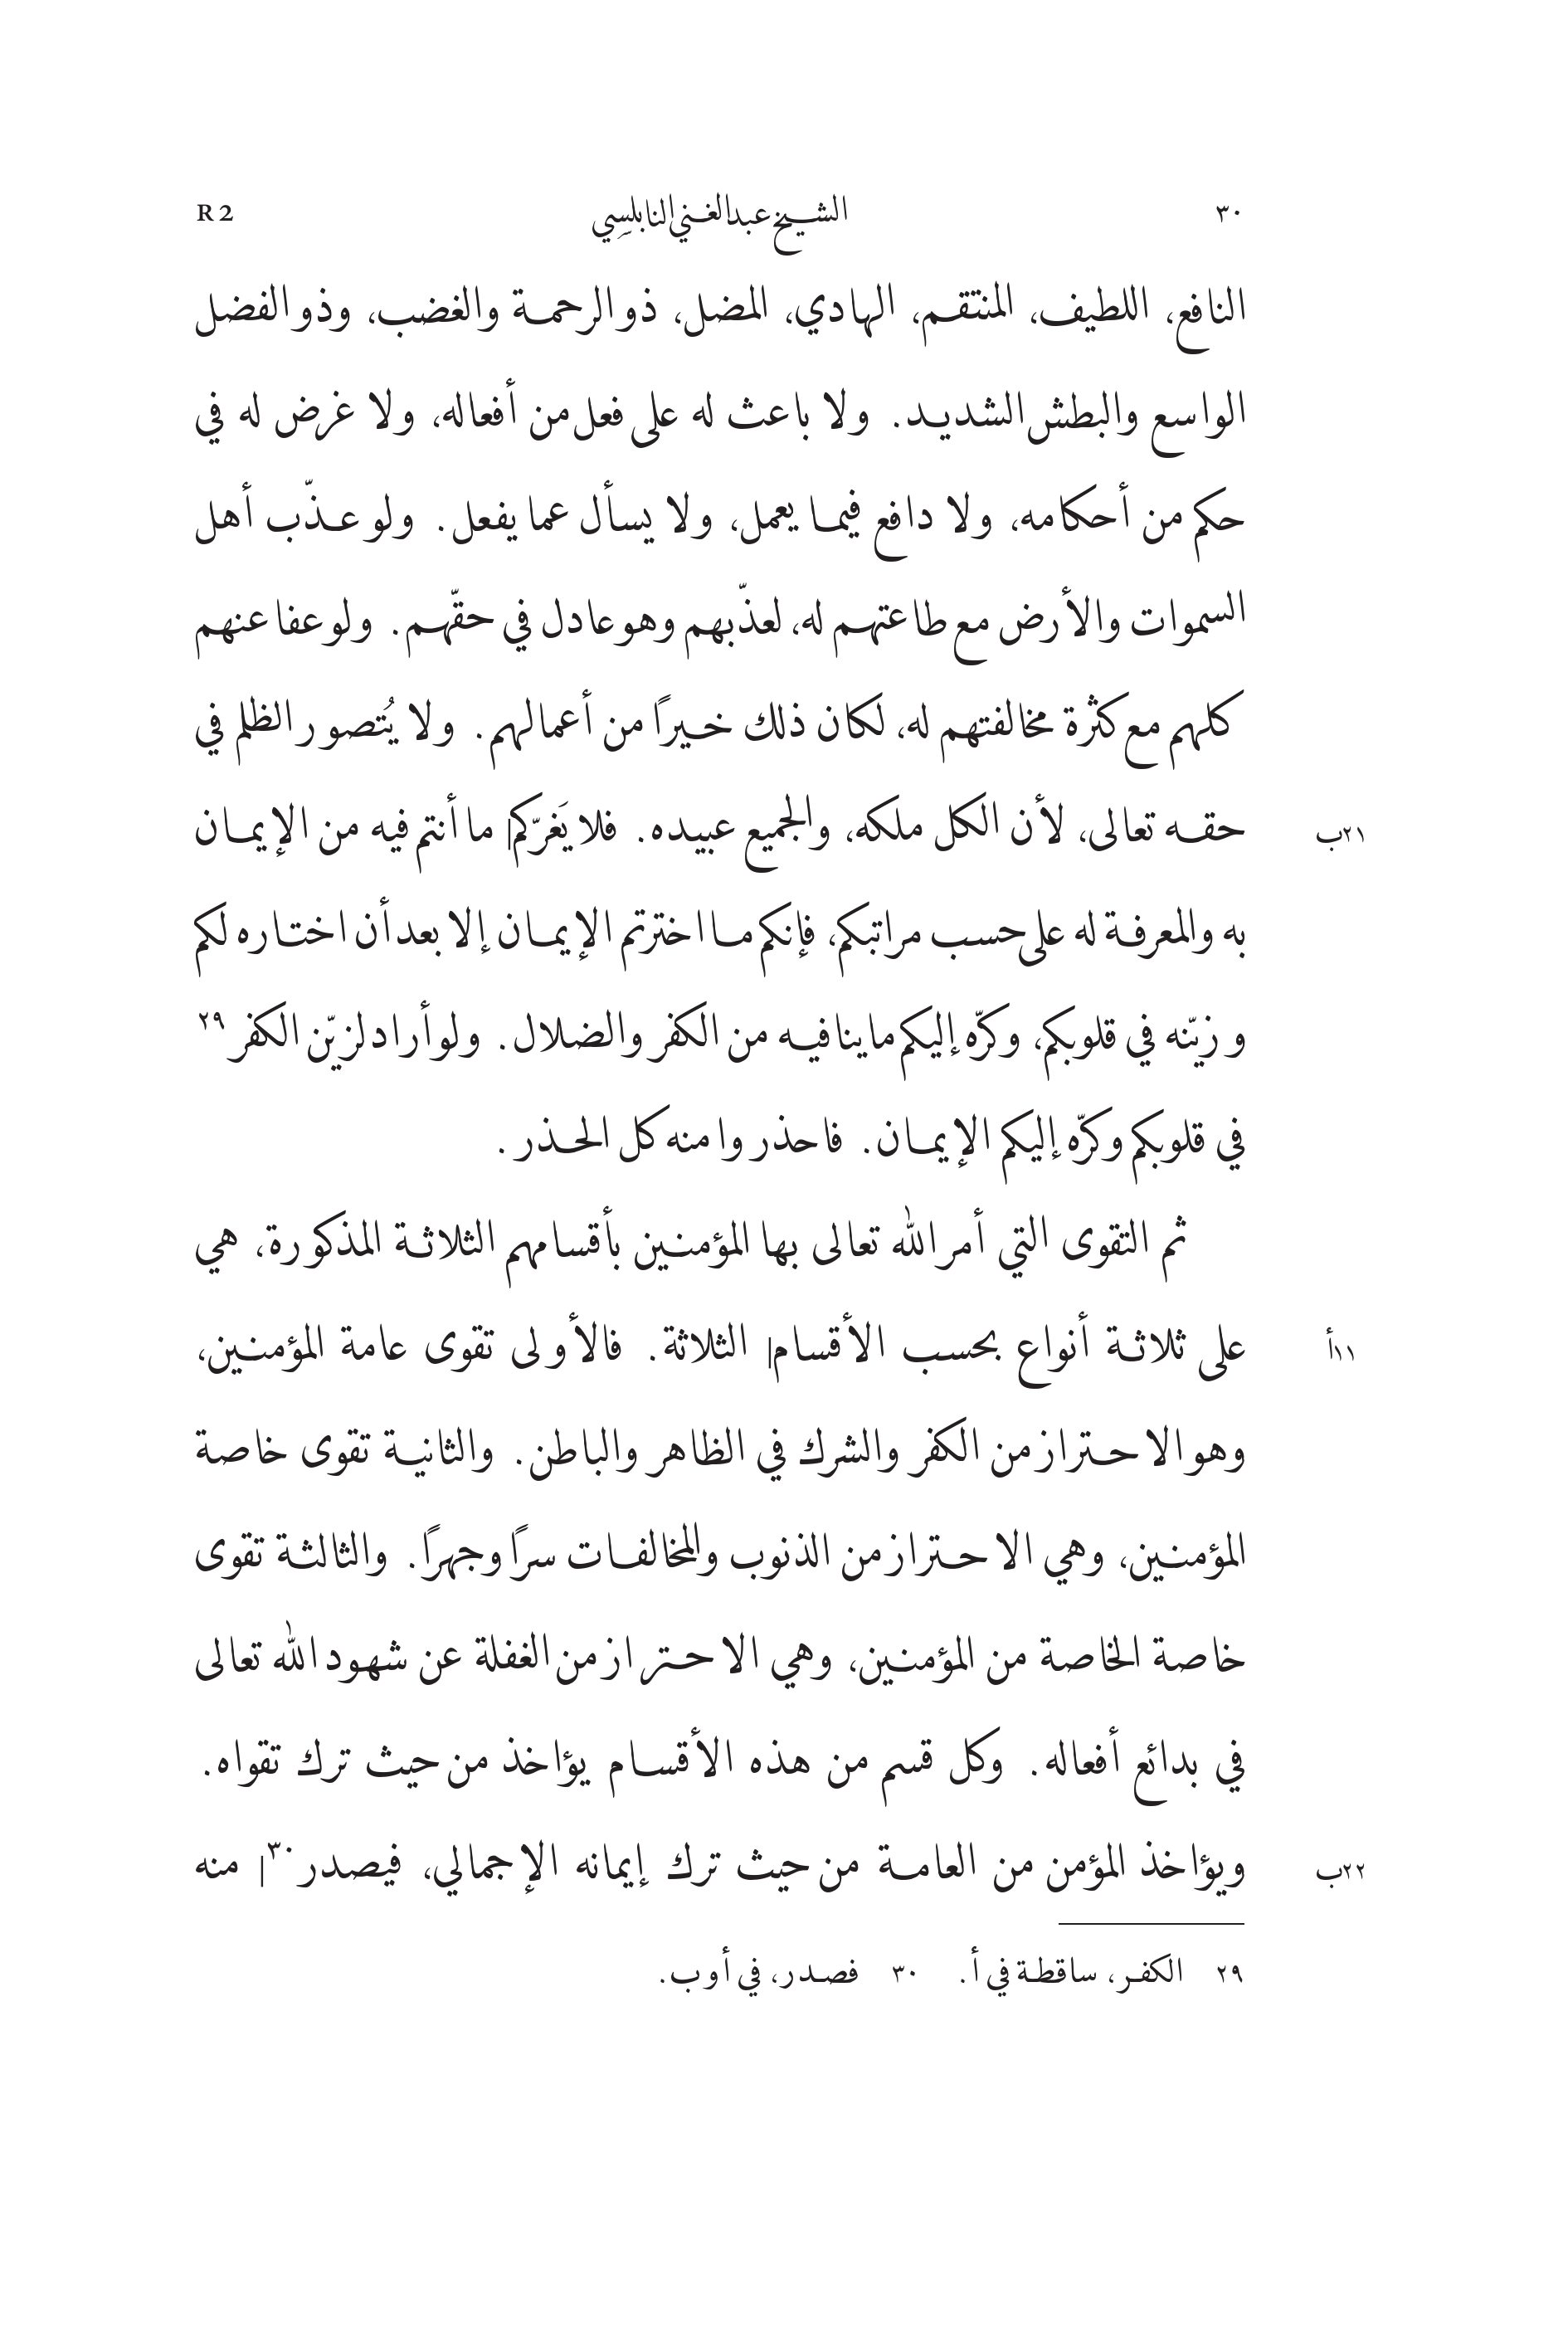 ٣٠ الشيخ عبد الغني النابلسي R 2
النافع، اللطيف، المنتقم، الهادي، المضل، ذو الرحمة والغضب، وذو الفضل
الواسع والبطش الشديد. ولا باعث له على فعل من أفعاله، ولا غرض له في
حكم من أحكامه، ولا دافع فيما يعمل، ولا يسأل عما يفعل. ولو عذّب أهل
السموات والأرض مع طاعتهم له، لعذّبهم وهو عادل في حقّهم. ولو عفا عنهم
كلهم مع كثرة مخالفتهم له، لكان ذلك خيرًا من أعمالهم. ولا يُتصور الظلم في
٢١ب حقه تعالى، لأن الكل ملكه، والجميع عبيده. فلا يَغرّكم| ما أنتم فيه من الإيمان
به والمعرفة له على حسب مراتبكم، فإنكم ما اخترتم الإيمان إلا بعد أن اختاره لكم
وزيّنه في قلوبكم، وكرّه إليكم ما ينافيه من الكفر والضلال. ولو أراد لزيّن الكفر٢٩
في قلوبكم وكرّه إليكم الإيمان. فاحذروا منه كل الحذر.
ثم التقوى التي أمر الله تعالى بها المؤمنين بأقسامهم الثلاثة المذكورة، هي
١١أ على ثلاثة أنواع بحسب الأقسام| الثلاثة. فالأولى تقوى عامة المؤمنين،
وهو الاحتراز من الكفر والشرك في الظاهر والباطن. والثانية تقوى خاصة
المؤمنين، وهي الاحتراز من الذنوب والمخالفات سرًا وجهرًا. والثالثة تقوى
خاصة الخاصة من المؤمنين، وهي الاحتراز من الغفلة عن شهود الله تعالى
في بدائع أفعاله. وكل قسم من هذه الأقسام يؤاخذ من حيث ترك تقواه.
٢٢ب ويؤاخذ المؤمن من العامة من حيث ترك إيمانه الإجمالي، فيصدر٣٠| منه
٢٩ الكفر، ساقطة في أ. ٣٠ فصدر، في أ و ب.